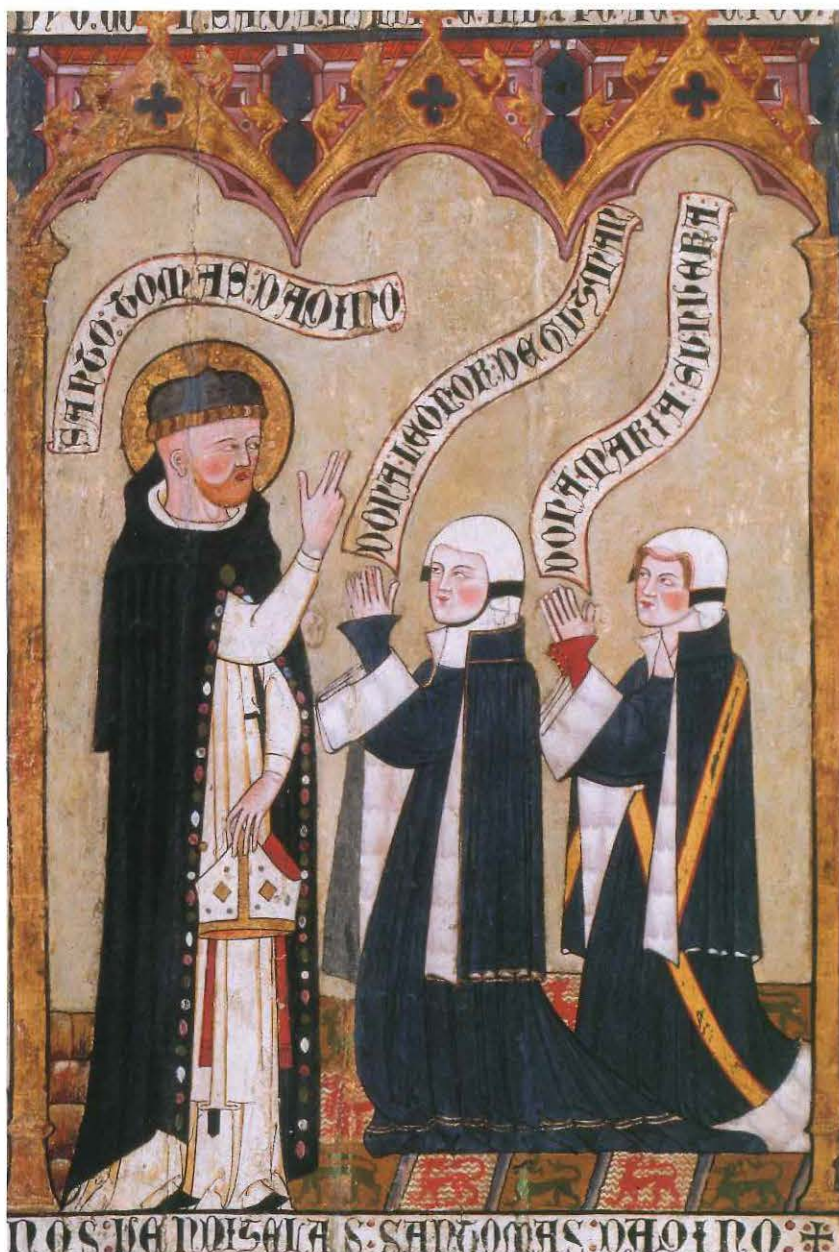 SANTO:TOMAS:DAQINO
DONA:LEONOR:DE GUSMAN
DONA MARIA:SUNUERA
NOS:BENDISELAS:SANTOMAS:DAQINO:+